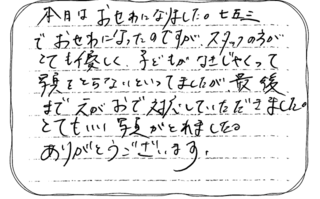 本日はおせわになりました。七五三
でおせわになったのですが、スタッフの方が
とても優しく、子どもがなきじゃくって
写真をとらないといってましたが、最後
までえがおで対応していただきました。
とてもいい写真がとれました。
ありがとうございます。